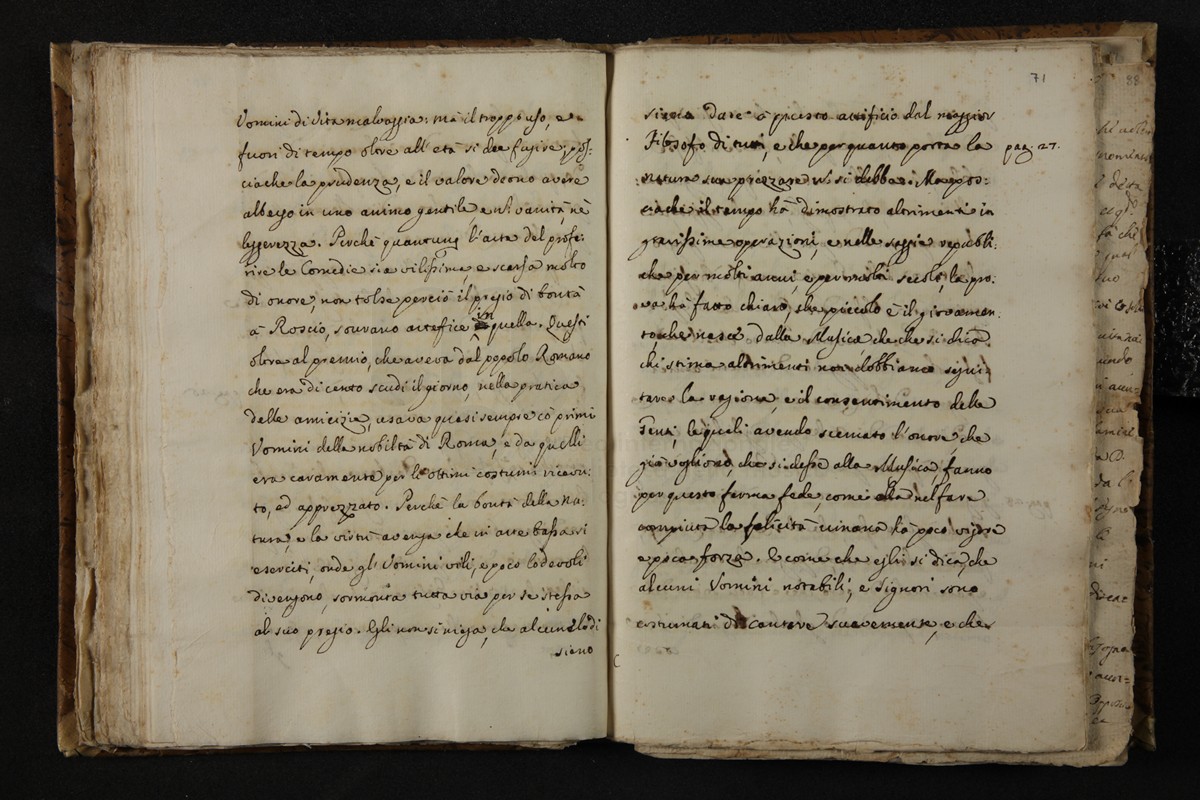 Uomini di vita malvaggia: mà il troppo uso, e
fuori di tempo oltre all' età si dee fugire; pos-
ciache la prudenza, e il valore deono avere
albergo in uno animo gentile e nõ vanità, nè
leggerezza. Perchè quantunq l'arte del profe-
rire le Comedie sia vilissima e scarsa molto
di onore, non tolse perciò il pregio di bontà
à Roscio, sourano artefice in quella. Questi
oltre al premio, che aveva dal popolo Romano
che era di cento scudi il giorno, nella pratica
delle amicizie, usava quasi sempre cò primi
Uomini della nobiltà di Roma, e da quelli
era caramente per li ottimi costumi ricevu-
to, ed apprezzato. Perchè la bontà della na-
tura, e la virtù avenga che in arte bassa si
eserciti, onde gl' Uomini vili, e poco lodevoli
divengono, sormonta tutta via per se stessa
al suo pregio. Egli non si niega, che alcune lodi
sieno
71
sieno date à questo artificio dal maggior
Filosofo di tutti, e che per quanto porta la
pag. 27.
natura sua prezzare nõ si debba: Ma pos-
ciache il tempo hà dimostrato altrimenti in
gravissime operazioni, e nelle saggie republi-
che per molti anni, e per molti secoli, la pro-
va hà fatto chiaro, che piccolo è il giovamen-
to che nasce dalla Musica, che che si dica
chi stima altrimenti non dobbiamo
la ragione, e il consentimento delle
Genti, le quali avendo scemato l'onore che
già vogliono, che si desse alla Musica, fanno
per questo ferma fede, come ella nel fare
compiuta la felicità umana hà poco vigore
e poca forza. E come che egli si dica, che
alcuni Uomini notabili, e Signori sono
costumati di cantare suavemente, e che
88